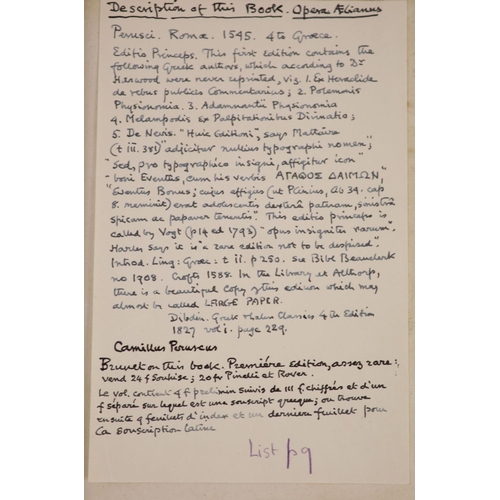 Description of this Book. Opera Ælianus
Perusci. Romæ. 1545. 4to Græce.
Editio Princeps. This first edition contains the
following Greek authors, which according to Dr
Harwood were never reprinted, viz. 1. Ex Heraclide
de rebus publicis Commentarius; 2. Polemonis
Physionomia. 3. Adamantii Physionomia
4. Melampodis Ex Palpitationibus Divinatio;
5. De Nevis. "Huic Editioni", says Mattaire
(t iii. 381) "adjicitur nullius typographi nomen;"
"Sed, pro typographico insigni, affigitur icon"
"boni Eventus, cum his verbis ΑΓΑΘΟΣ ΔΑΙΜΩΝ,"
"Eventus Bonus; cujus effigies (ut Plinius, lib 34. cap
8. meminit) erat adolescentis dextrâ pateram, sinistrâ
Spicam ac papaver tenentis". This editio princeps is
called by Vogt (p14 ed 1793) "opus insigniter rarum".
Harles says it is "a rare edition not to be despised".
Introd. Ling: Græc: t ii. p 250. see Bibl Beauclerk
no 1908. Crofts 1588. In the Library at Althorp,
there is a beautiful copy of this edition which may
almost be called LARGE PAPER.
Dibdin. Greek &Latin Classics 4th Edition
1827 vol i. page 229.
Camillus Peruscus
Brunet on this book. Première Edition, assez rare:
vend 24 f Soubise; 20 fr Pinelli et Rover.
Le vol. contient 4 f prelimin suivis de 111 f. chiffrés et d'un
f séparé sur lequel est une souscript grecque; on trouve
ensuite 4 feuillets d'index et un dernière feuillet pour
la souscription latine
List p9